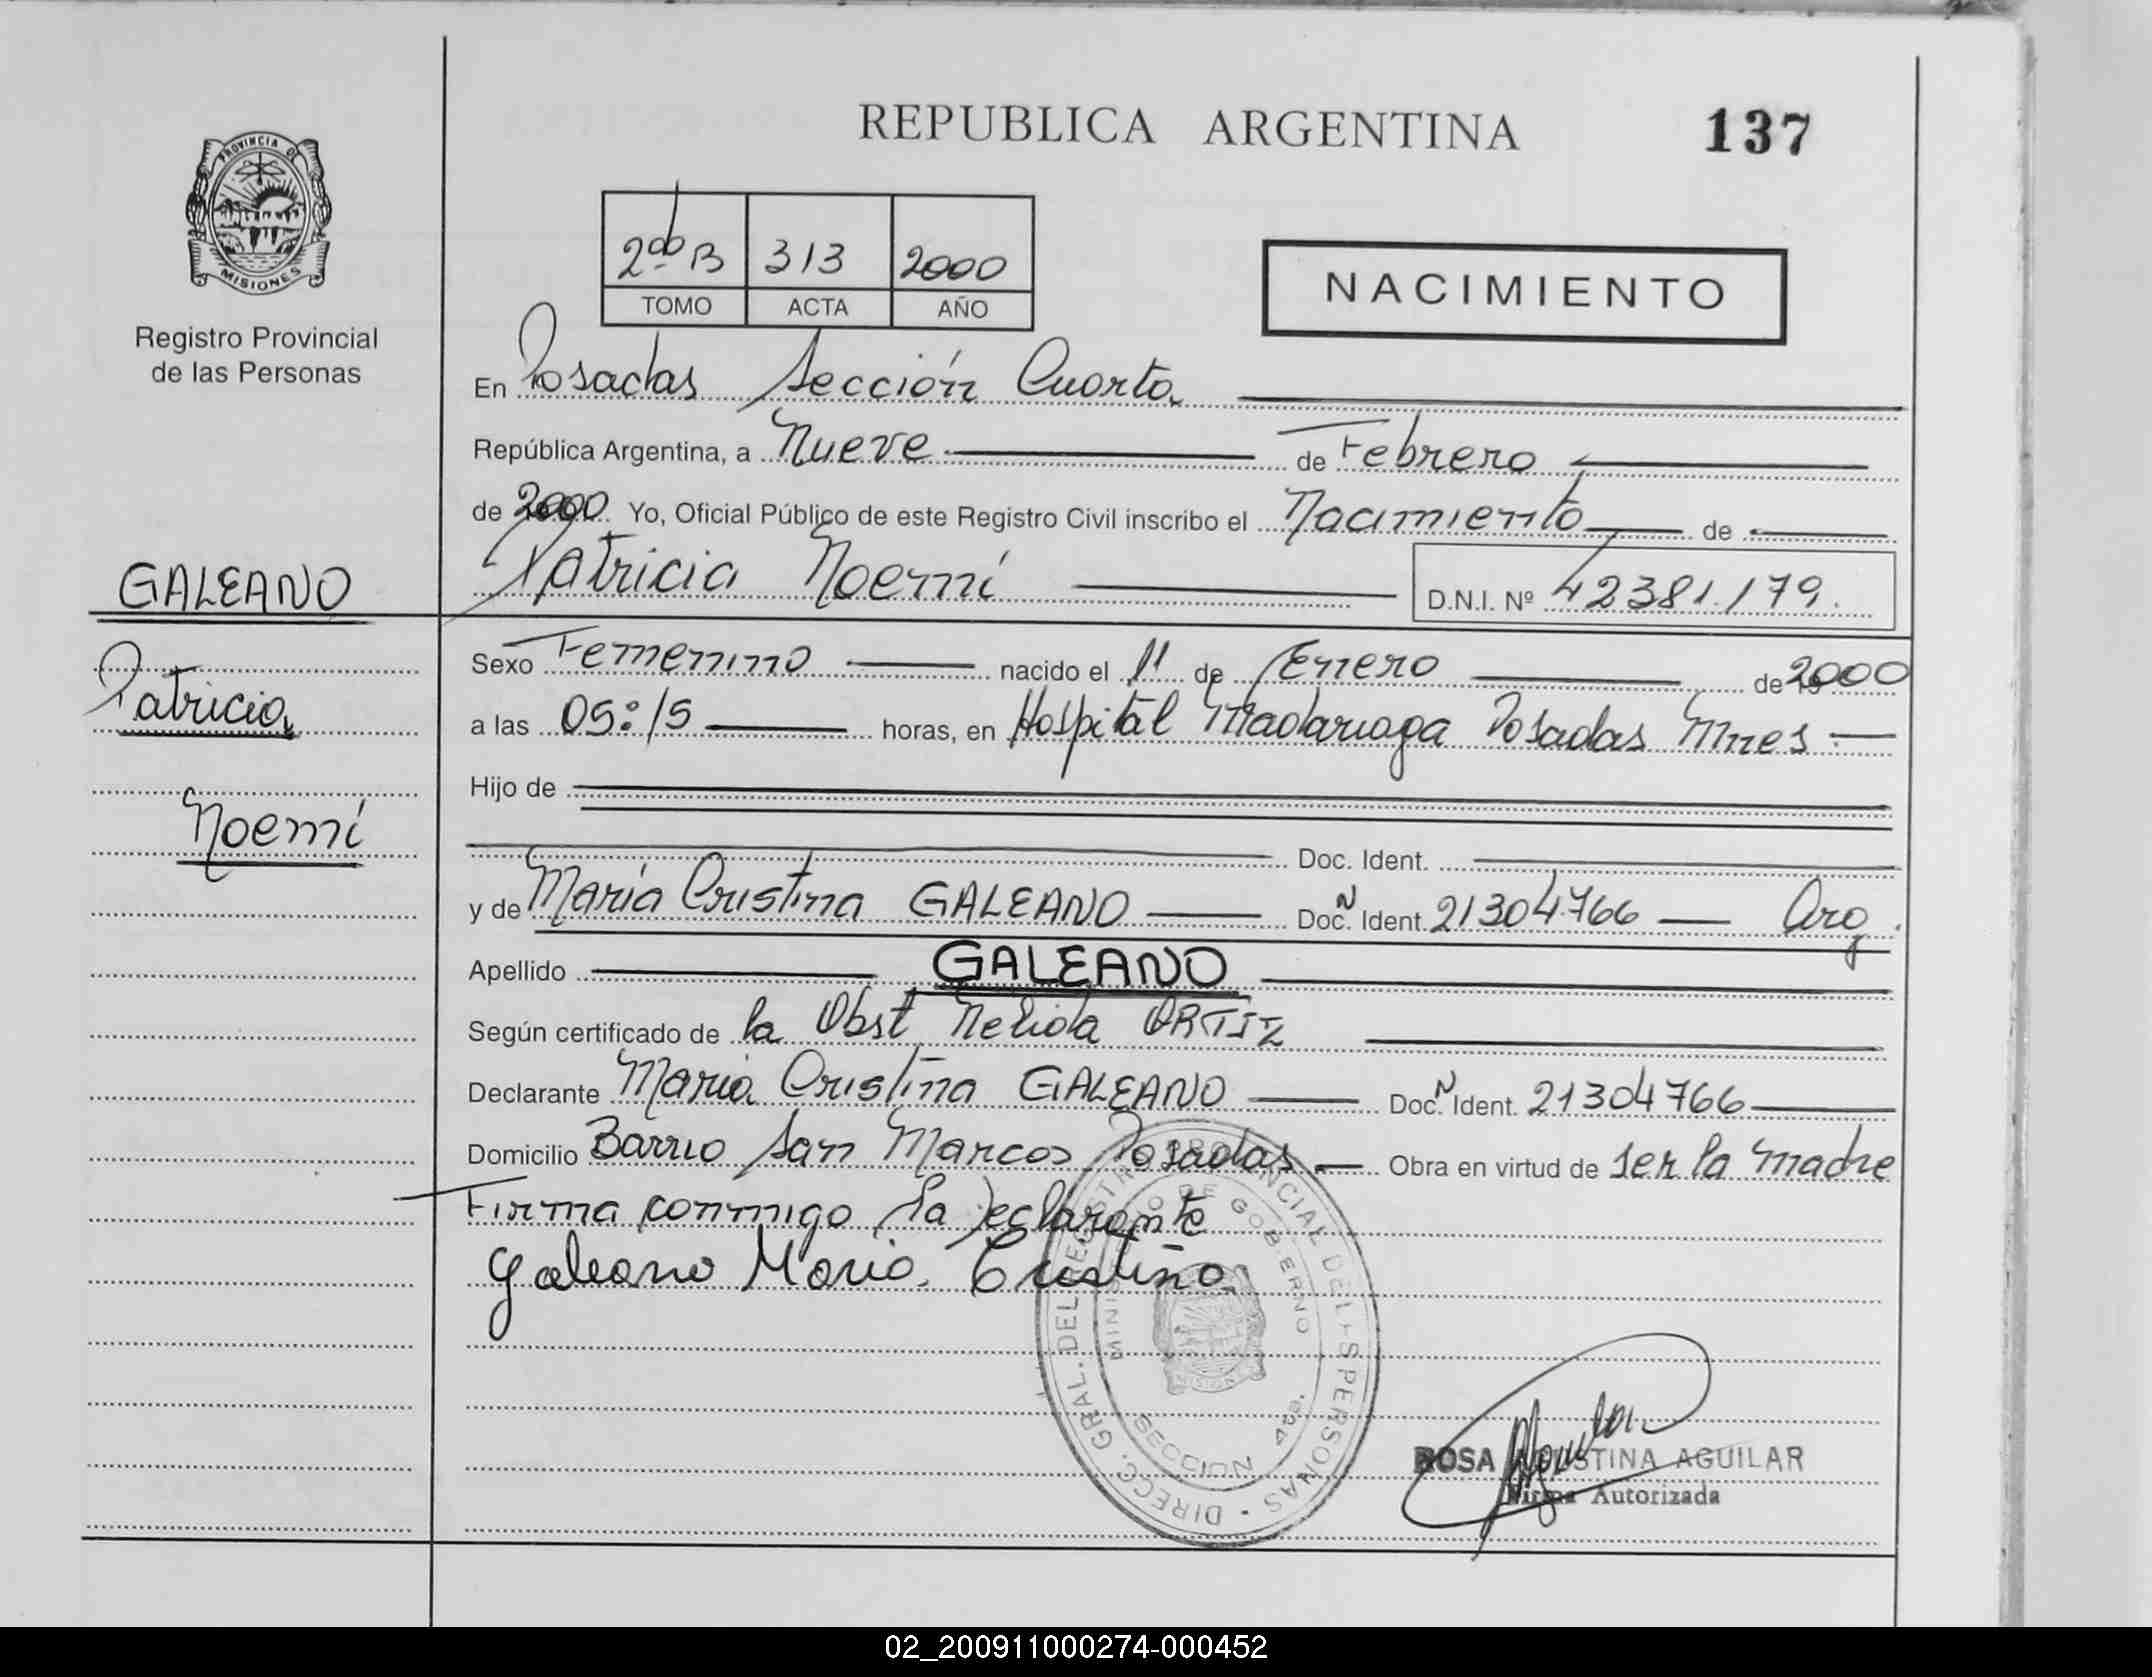 REPUBLICA ARGENTINA
137
PROVINCIA DE
MISIONES
Registro Provincial
de las Personas
2do B 313 2000
TOMO ACTA AÑO
NACIMIENTO
En Posadas Sección Cuarta
República Argentina, a Nueve de Febrero
de 2000 Yo, Oficial Público de este Registro Civil inscribo el Nacimiento de
Patricia Noemí D.N.I. Nº 42381.179.
GALEANO
Patricia
Noemí
Sexo Femenino nacido el 11 de Enero de 2000
a las 05:15 horas, en Hospital Madariaga Posadas Mnes
Hijo de
Doc. Ident.
y de María Cristina GALEANO Doc. N Ident. 21304766 Arg.
Apellido GALEANO
Según certificado de la Obst ORTIZ
Declarante María Cristina GALEANO Doc. N Ident. 21304766
Domicilio Barrio San Marcos Posadas Obra en virtud de ser la madre
Firma conmigo la Declarante
Galeano Maria Cristina
DIRECC. GRAL. DEL REGISTRO PROVINCIAL DE LAS PERSONAS
MINISTERIO DE GOBIERNO
MISIONES
SECCION 4ta.
ROSA AGUSTINA AGUILAR
Firma Autorizada
02_200911000274-000452